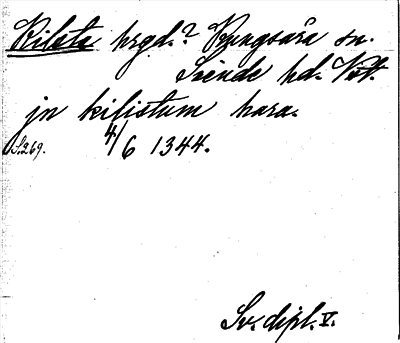 Kilsta hrgd.? Kungsåra sn.
Siende hd. Vstm.
jn kilistum hara.
S.269. 4/6 1344.
Sv. dipl. V.